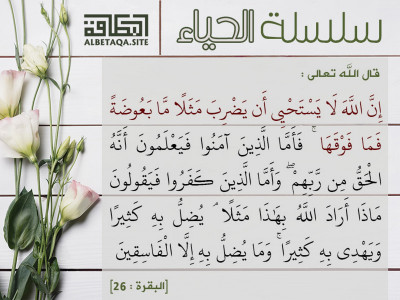 سلسلة الحياء
البطاقة
ALBETAQA.SITE
قال الله تعالى :
إِنَّ اللَّهَ لَا يَسْتَحْيِي أَن يَضْرِبَ مَثَلًا مَّا بَعُوضَةً
فَمَا فَوْقَهَا ۚ فَأَمَّا الَّذِينَ آمَنُوا فَيَعْلَمُونَ أَنَّهُ
الْحَقُّ مِن رَّبِّهِمْ ۖ وَأَمَّا الَّذِينَ كَفَرُوا فَيَقُولُونَ
مَاذَا أَرَادَ اللَّهُ بِهَذَا مَثَلًا ۘ يُضِلُّ بِهِ كَثِيرًا
وَيَهْدِي بِهِ كَثِيرًا ۚ وَمَا يُضِلُّ بِهِ إِلَّا الْفَاسِقِينَ
[البقرة : 26]